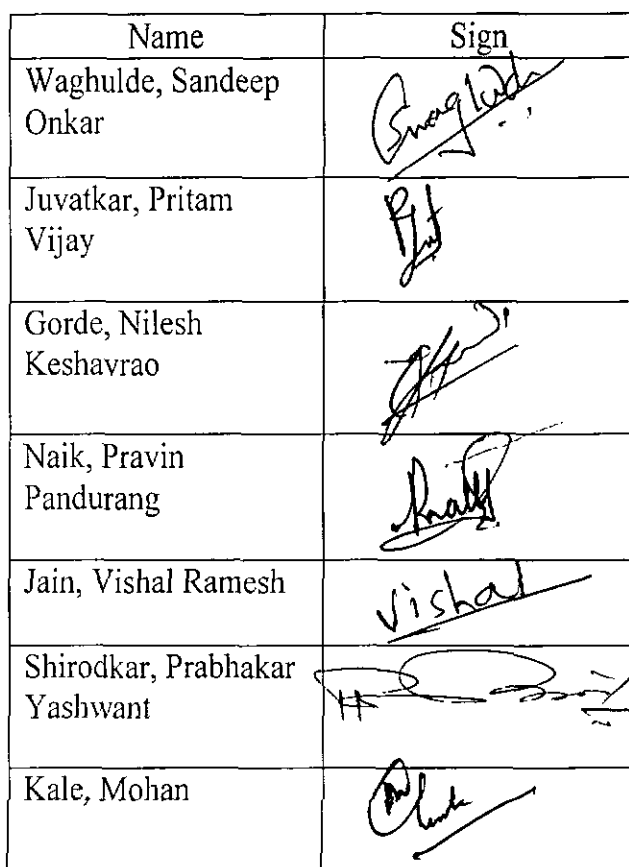 Name Sign
Waghulde, Sandeep
Onkar
Juvatkar, Pritam
Vijay
Gorde, Nilesh
Keshavrao
Naik, Pravin
Pandurang
Jain, Vishal Ramesh Vishal
Shirodkar, Prabhakar
Yashwant
Kale, Mohan